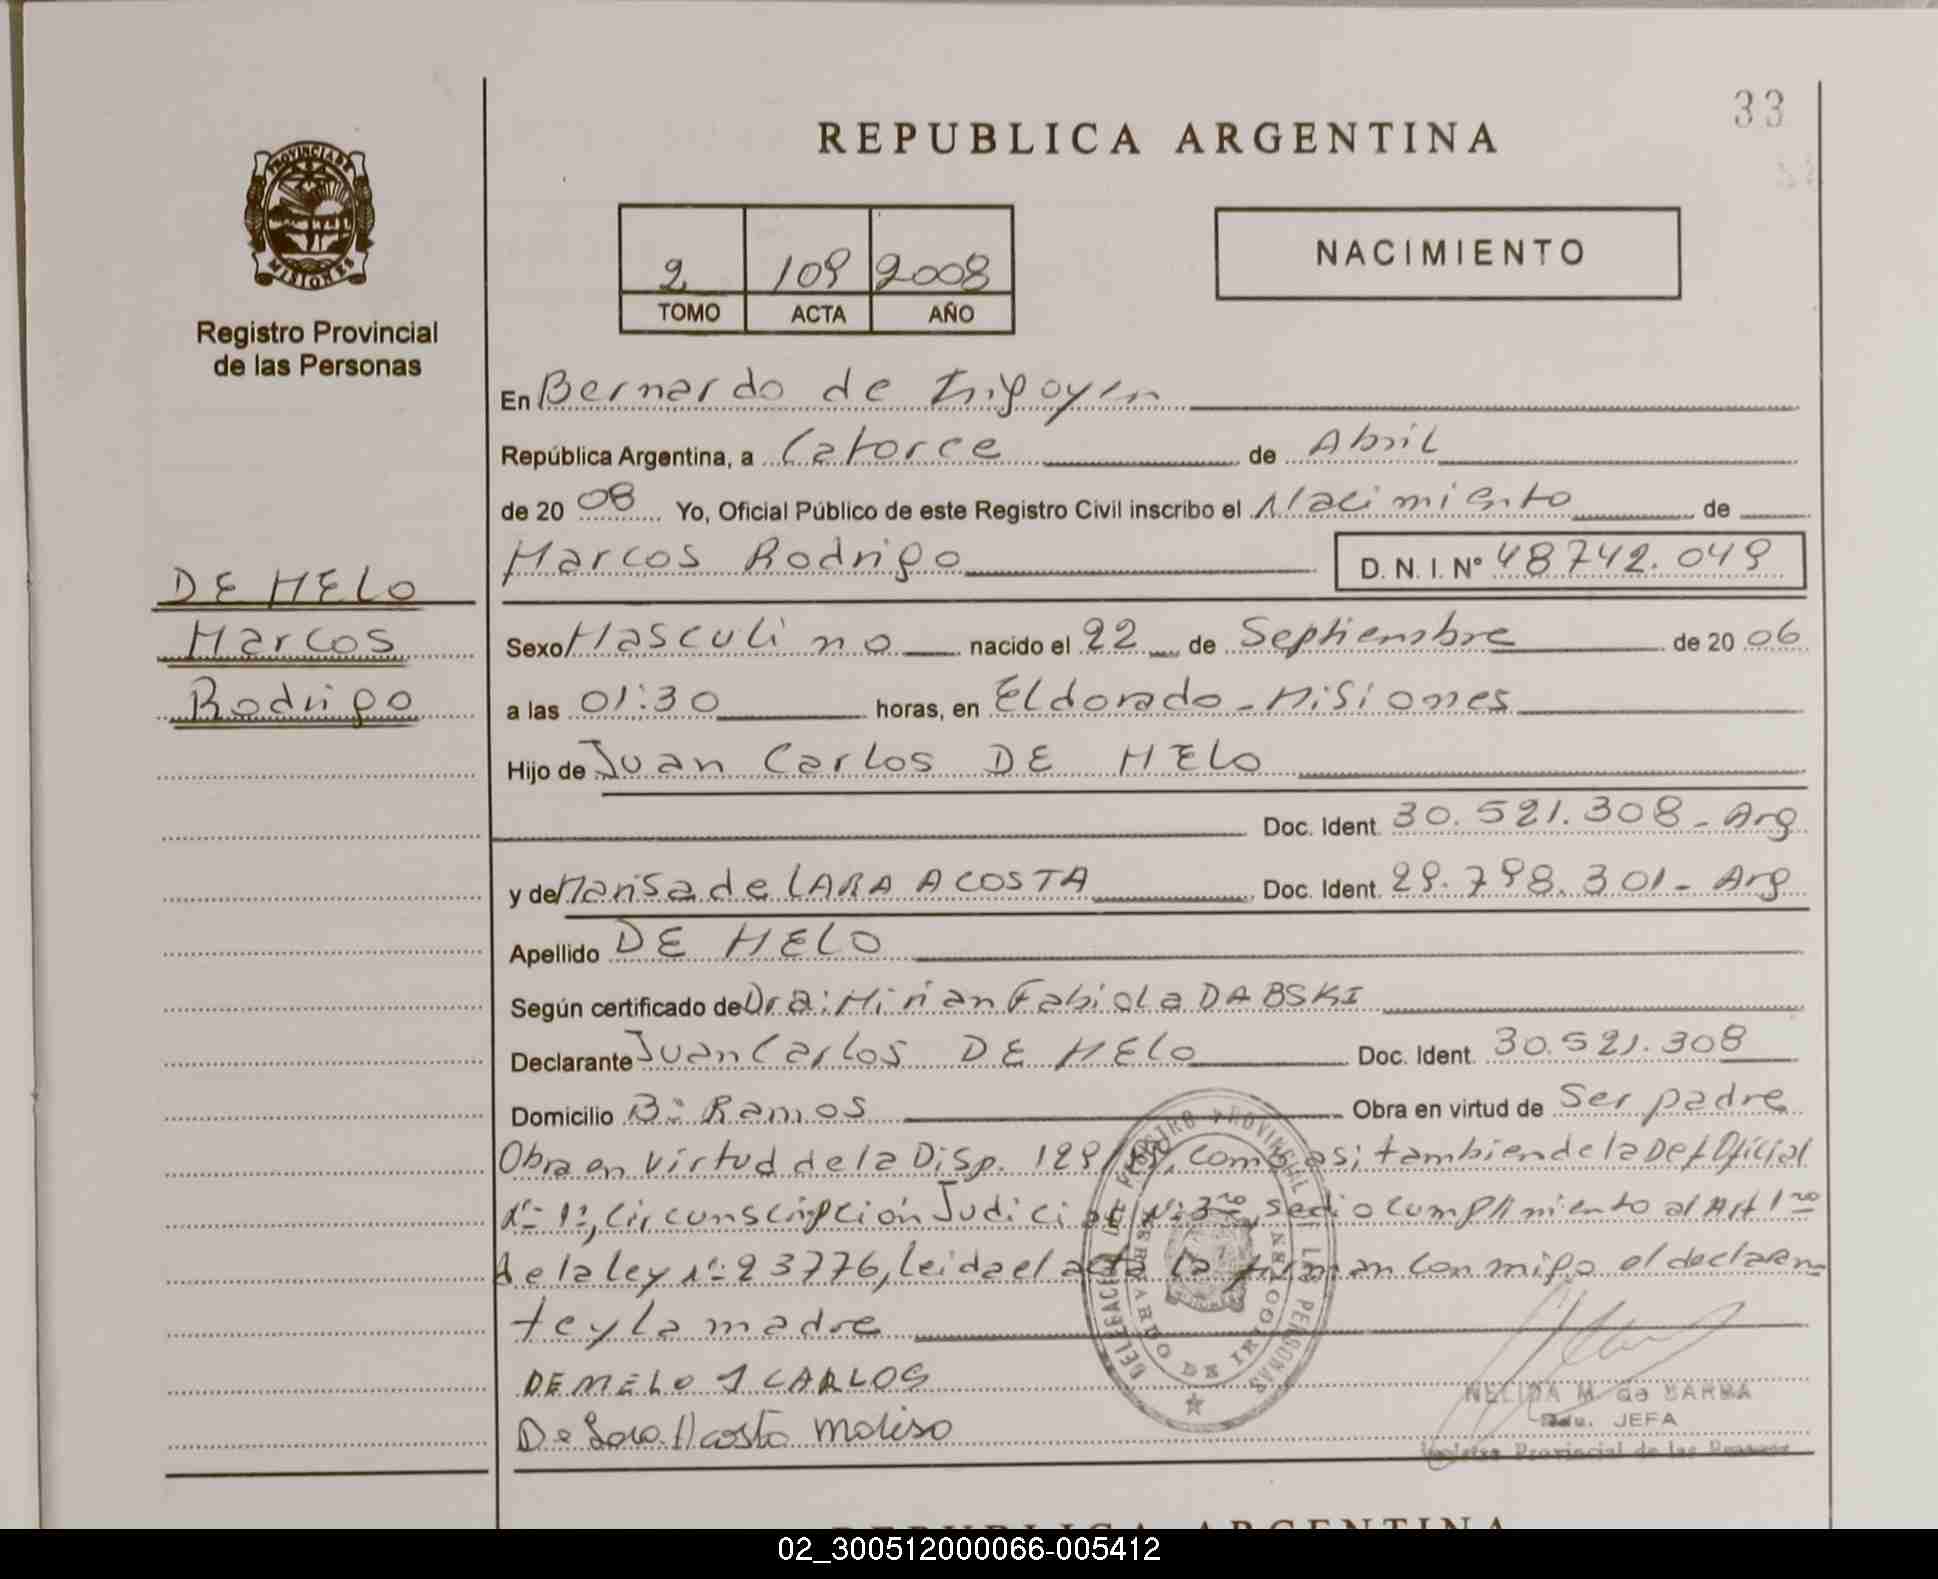 33
REPUBLICA ARGENTINA
PROVINCIA DE
MISIONES
Registro Provincial
de las Personas
2 109 2008
TOMO ACTA AÑO
NACIMIENTO
En Bernardo de Irigoyen
República Argentina, a Catorce de Abril
de 20 08 Yo, Oficial Público de este Registro Civil inscribo el Nacimiento de
Marcos Rodrigo D. N. I. N° 48742.049
DE MELO
Marcos
Rodrigo
Sexo Masculino nacido el 22 de Septiembre de 20 06
a las 01:30 horas, en Eldorado - Misiones
Hijo de Juan Carlos DE MELO
Doc. Ident. 30.521.308 - Arg
y de Marisa de LARA ACOSTA Doc. Ident. 29.798.301 - Arg
Apellido DE MELO
Según certificado de Dra: Mirian Fabiola DABSKI
Declarante Juan Carlos DE MELO Doc. Ident. 30.521.308
Domicilio B° Ramos Obra en virtud de Ser padre
Obra en virtud de la Disp. 129/ como asi tambien de la Def Oficial
N° 1°, Circunscripción Judicial N° 3ro, se dio cumplimiento al Art 1ro
de la ley N° 23776, leida el acta la firman conmigo el declaran-
te y la madre
DE MELO J CARLOS
De Lara Acosta Marisa
NELIDA M. de BARRA
JEFA
Registro Provincial de las Personas
REPUBLICA ARGENTINA
02_300512000066-005412